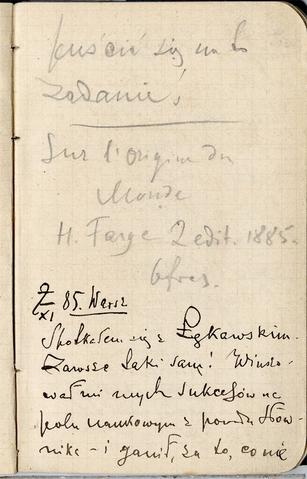 puścić się na to
zadanie!
Sur l'origine du
Monde
H. Faye 2 edit. 1885.
6 frcs.
2/XI 85. Warsz
Spotkałem się z Łętkawskim.
Zawsze taki sam! Winszo-
wał mi mych sukcesów na
polu naukowym z powodu Słow-
nika – i ganił, za to, co nie